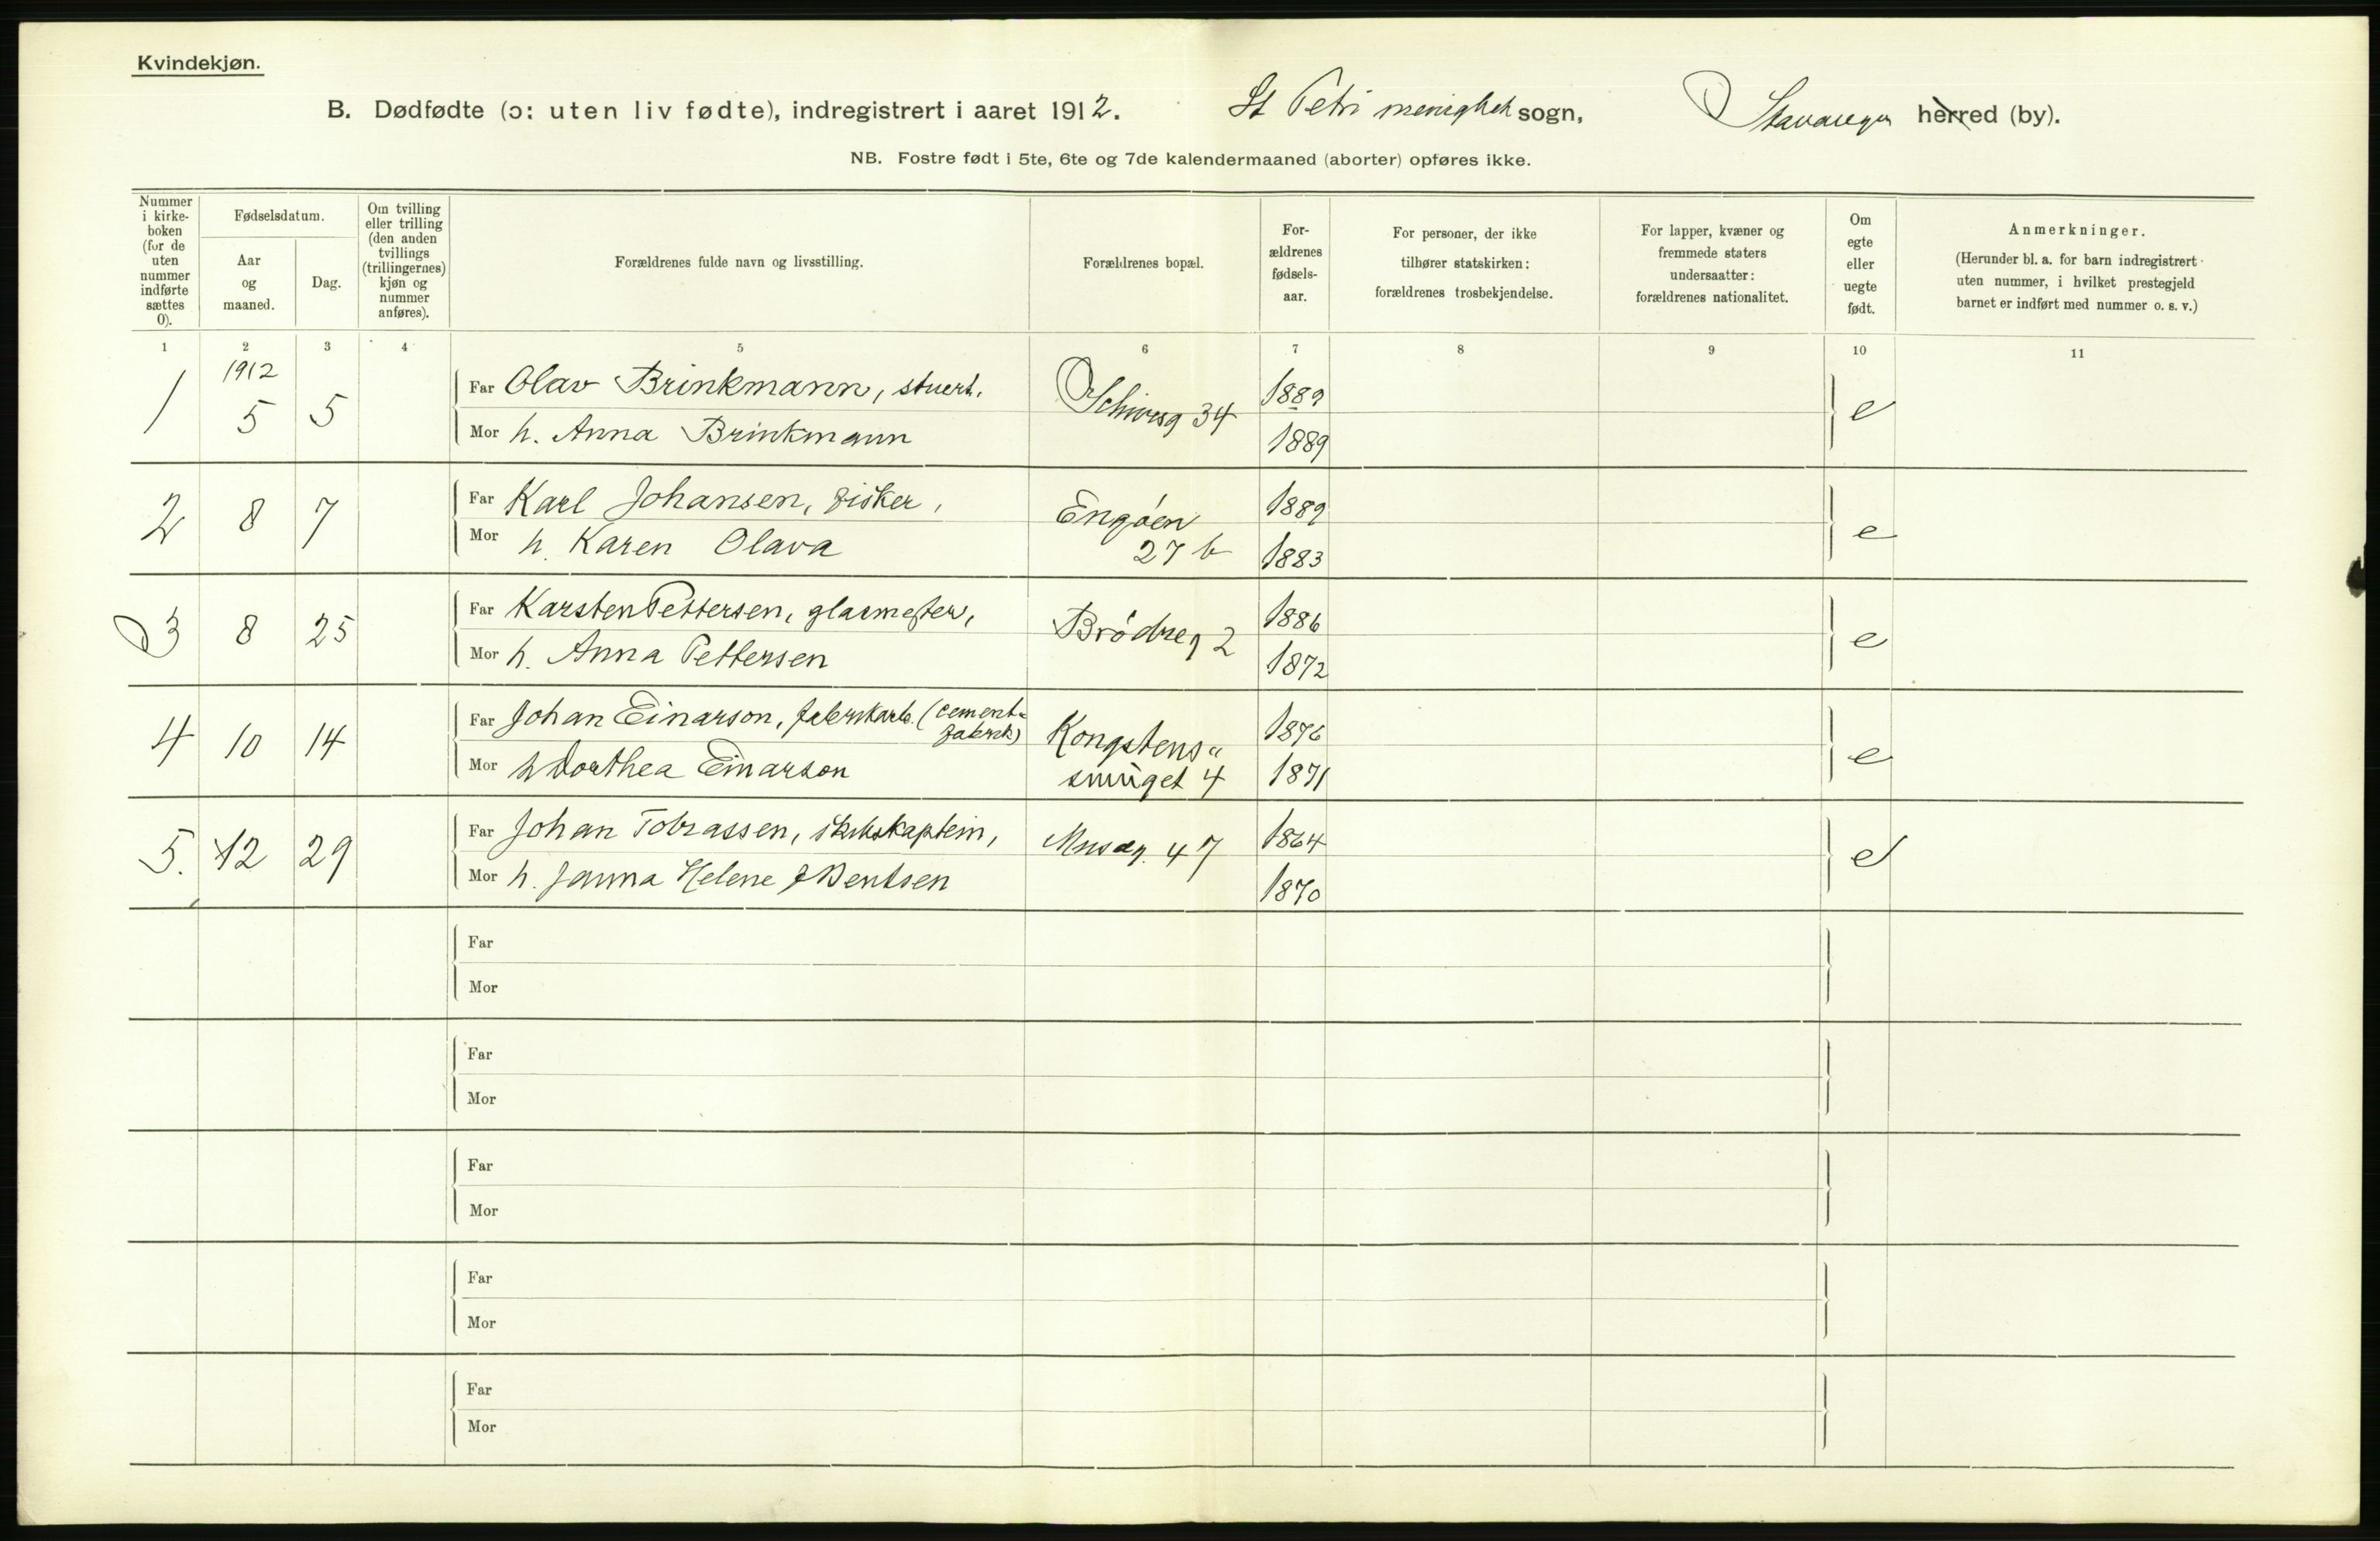 Kvindekjøn.
B. Dødfødte (ɔ: uten liv fødte), indregistrert i aaret 1912. St Petri menighet sogn, Stavanger herred (by).
NB. Fostre født i 5te, 6te og 7de kalendermaaned (aborter) opføres ikke.
Nummer
i kirke-
boken
(for de
uten
nummer
indførte
sættes
0).
Fødselsdatum.
Aar
og
maaned.
Dag.
Om tvilling
eller trilling
(den anden
tvillings
(trillingernes)
kjøn og
nummer
anføres).
Forældrenes fulde navn og livsstilling.
Forældrenes bopæl.
For-
ældrenes
fødsels-
aar.
For personer, der ikke
tilhører statskirken:
forældrenes trosbekjendelse.
For lapper, kvæner og
fremmede staters
undersaatter:
forældrenes nationalitet.
Om
egte
eller
uegte
født.
Anmerkninger.
(Herunder bl. a. for barn indregistrert
uten nummer, i hvilket prestegjeld
barnet er indført med nummer o. s. v.)
1 2 3 4 5 6 7 8 9 10 11
1912
1 5 5 Far Olav Brinkmann, stuert. 34 1889 e
Mor h. Anna Brinkmann 1889
2 8 7 Far Karl Johansen, fisker, Engøen 1889 e
Mor h. Karen Olava 27 b 1883
3 8 25 Far Karsten Pettersen, glasmester, Brødreg 2 1886 e
Mor h. Anna Pettersen 1872
4 10 14 Far Johan Einarson, fabrikarb. (cement- 1876 e
fabrik) Kongstens-
Mor h Dorthea Einarson smuget 4 1871
5. 12 29 Far Johan Tobiassen, skibskaptein, Museg. 47 1864 e
Mor h. Janna Helene f Bentsen 1870
Far
Mor
Far
Mor
Far
Mor
Far
Mor
Far
Mor